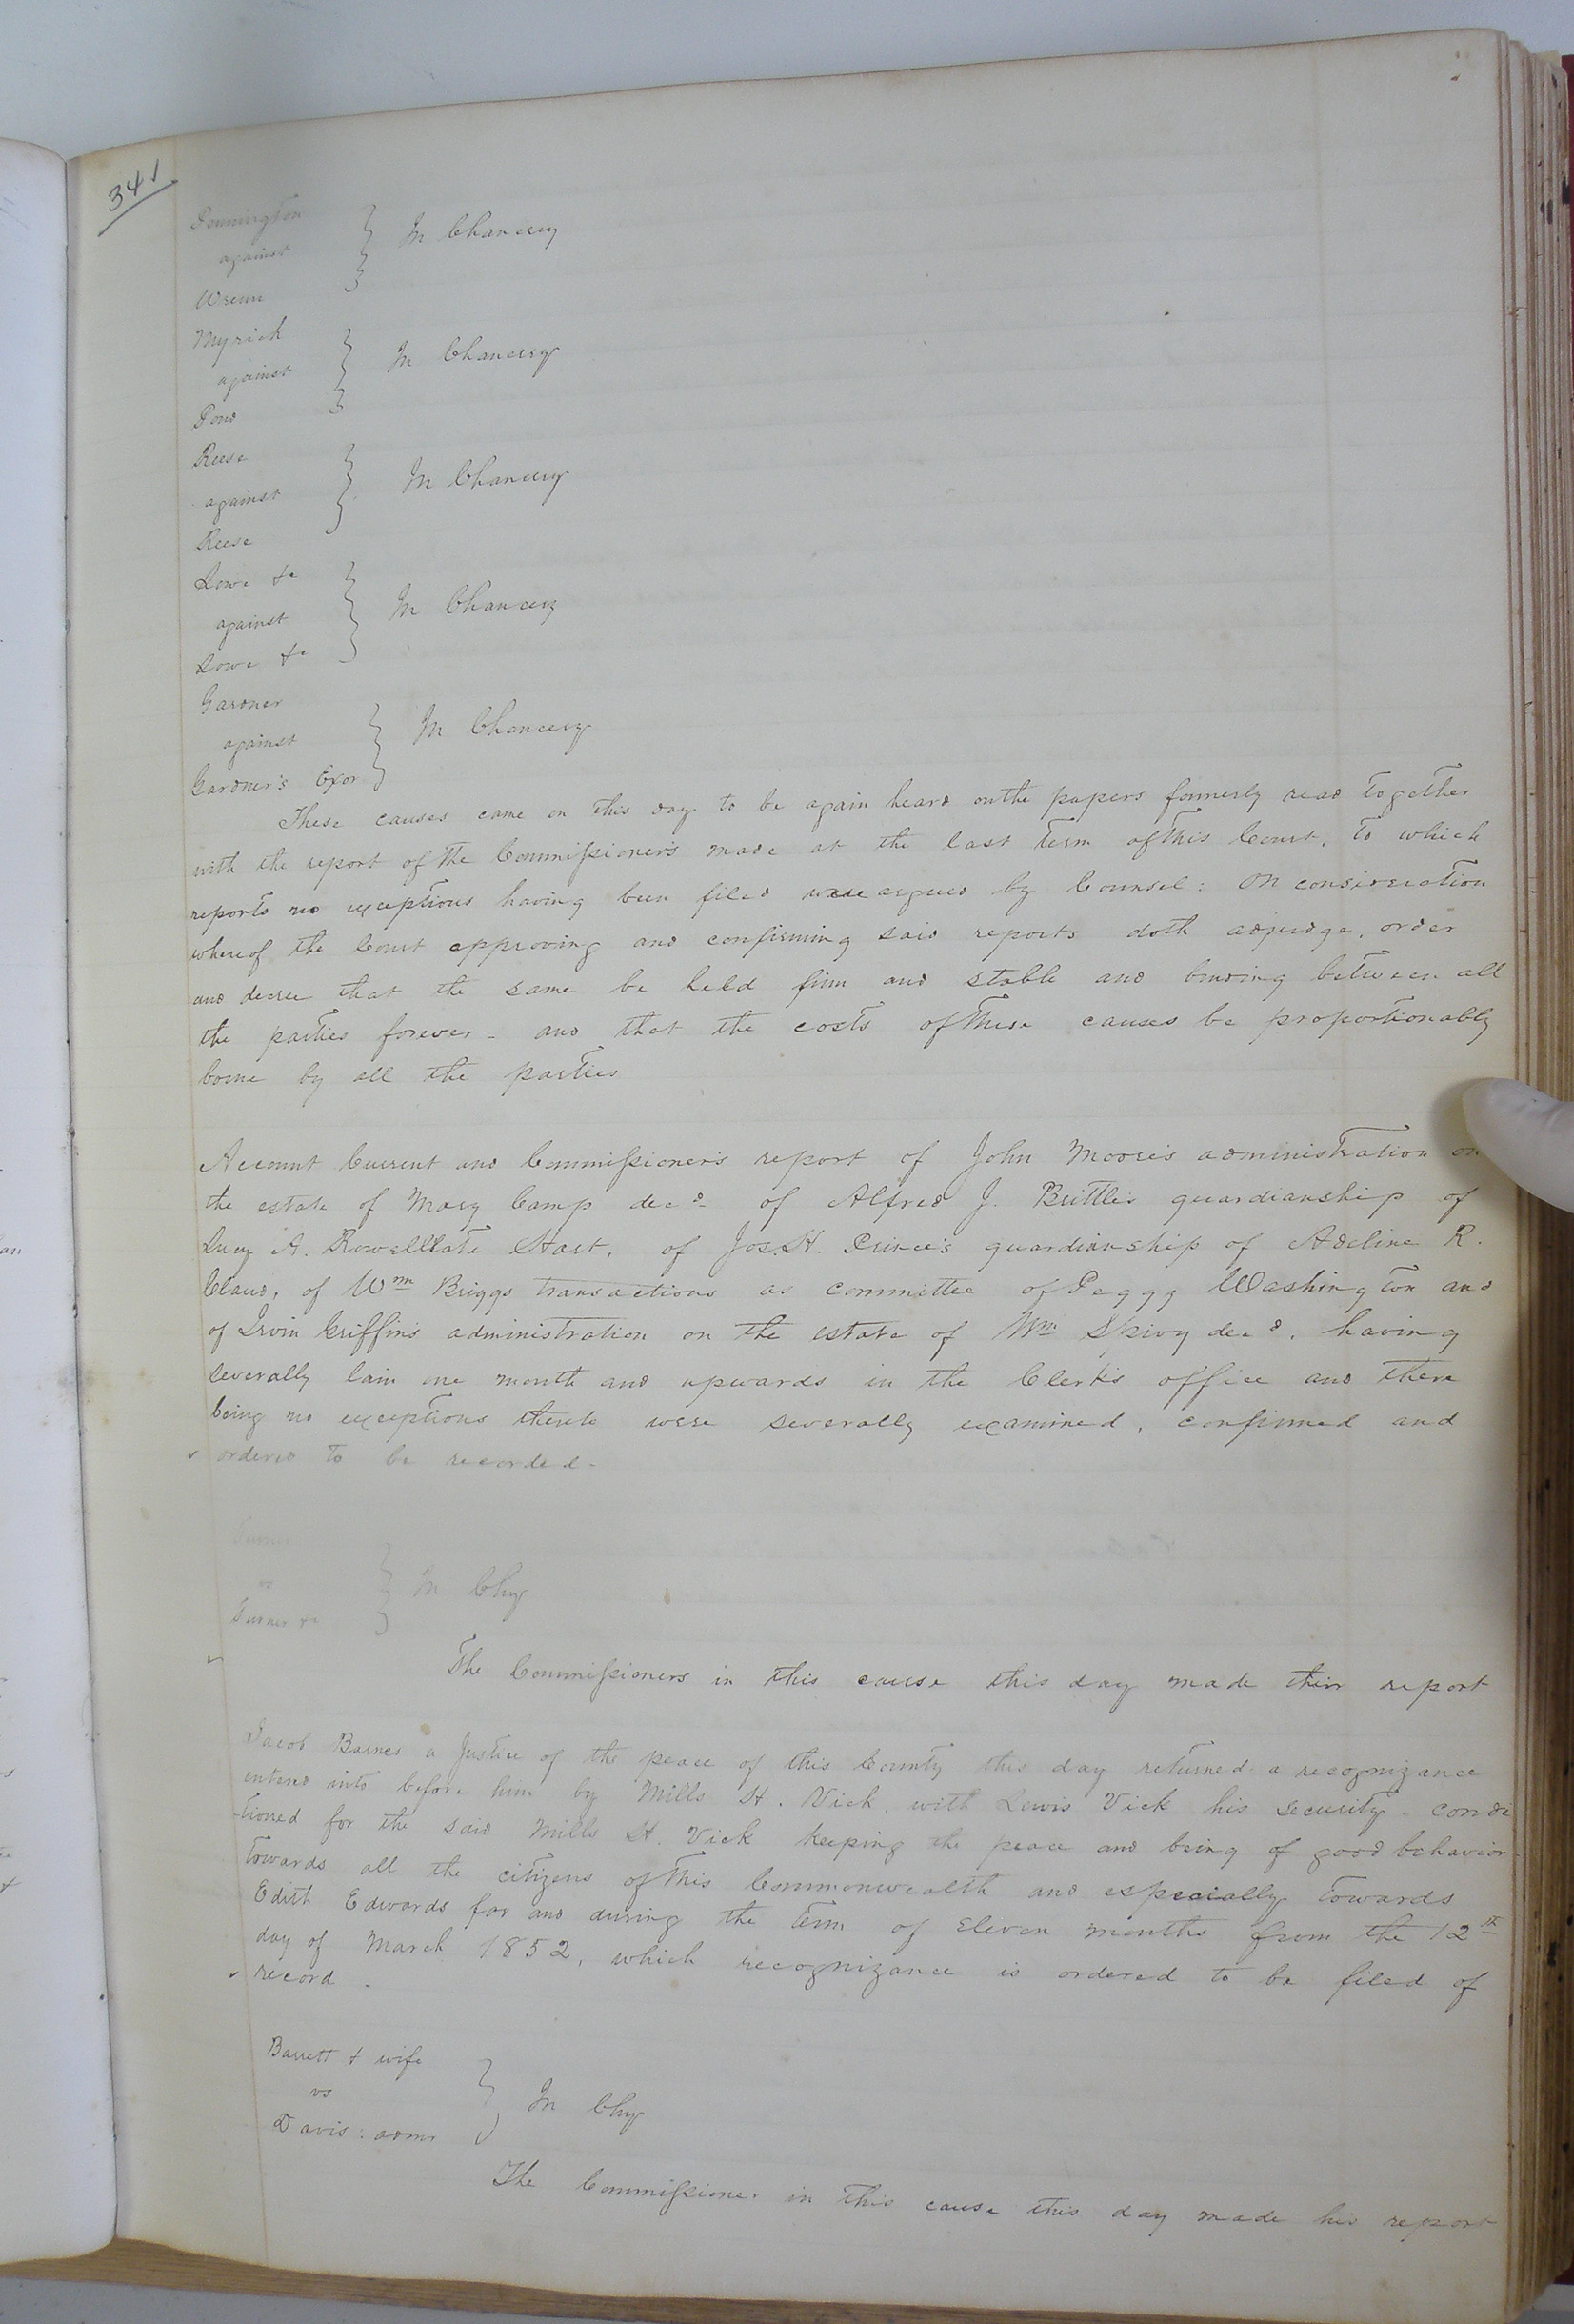 341
Pennington
against } In Chancery
Wrenn
Myrick
against } In Chancery
Pond
Reese
against } In Chancery
Reese
Lowe &c
against } In Chancery
Lowe &c
Gardner
against } In Chancery
Gardner's Exor
These causes came on this day to be again heard on the papers formerly read together
with the report of the Commissioner's made at the last term of this Court, to which
reports no exceptions having been filed were argued by Counsel: On consideration
whereof the Court approving and confirming said reports doth adjudge, order
and decree that the same be held firm and stable and binding between all
the parties forever - and that the costs of these causes be proportionably
borne by all the parties
Account Current and Commissioner's report of John Moore's administration on
the estate of Mary Camp decd. of Alfred J. Brittle's guardianship of
Lucy A. Rowell late Hart, of Jos. H. Prince's guardianship of Adeline R.
Claud, of Wm Briggs transactions as committee of Peggy Washington and
of Irvin Griffin's administration on the estate of Wm Spivy decd, having
severally lain one month and upwards in the Clerk's office and there
being no exceptions thereto were severally examined, confirmed and
ordered to be recorded -
Turner
vs } In Chy
Turner &c
The Commissioners in this cause this day made their report
Jacob Barnes a Justice of the peace of this County this day returned a recognizance
entered into before him by Mills H. Vick, with Lewis Vick his security - condi
-tioned for the said Mills H. Vick keeping the peace and being of good behavior
towards all the citizens of this Commonwealth and especially towards
Edith Edwards for and during the term of eleven months from the 12th
day of March 1852, which recognizance is ordered to be filed of
record.
Barrett & wife
vs } In Chy
Davis: admr
The Commissioner in this cause this day made his report